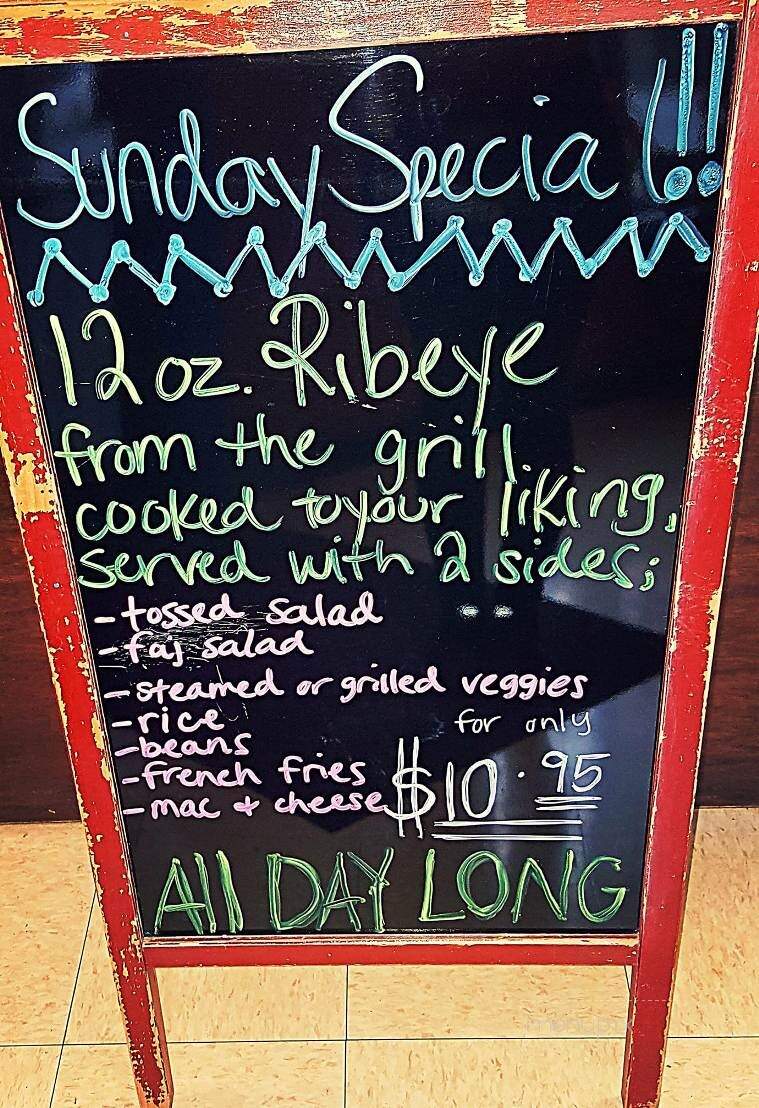 Sunday Special!!
12 oz. Ribeye
from the grill
cooked to your liking,
served with 2 sides;
- tossed salad
- faj salad
- steamed or grilled veggies
- rice
- beans
- french fries
- mac & cheese
for only
$10.95
All DAY LONG